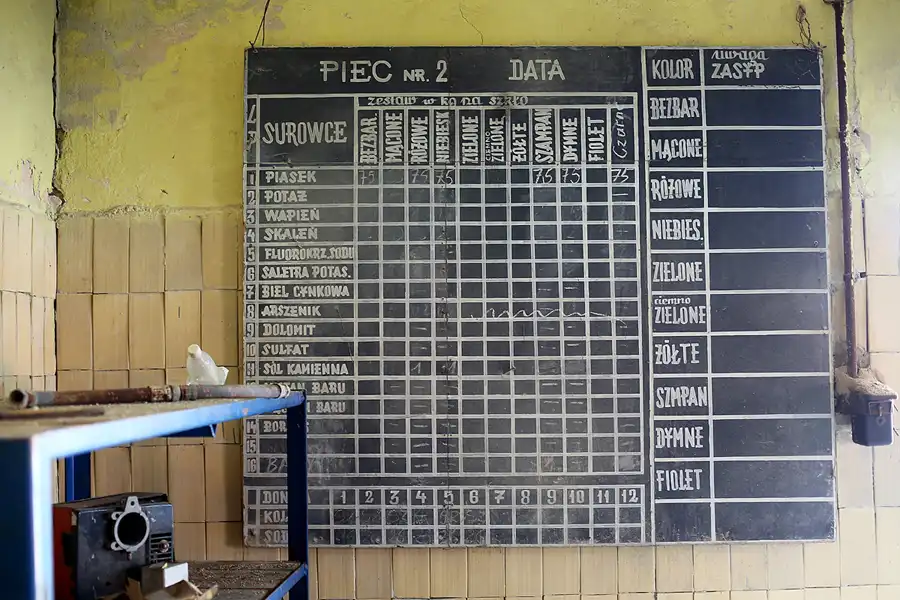 PIEC NR. 2 DATA
zestaw w kg na szkło
SUROWCE BEZBAR. MĄCONE RÓŻOWE NIEBIESK ZIELONE CIEMNO ZIELONE ŻÓŁTE SZAMPAN DYMNE FIOLET Czarne
1 PIASEK 75 75 75 75 75 75
2 POTAŻ
3 WAPIEŃ
4 SKALEŃ
5 FLUOROKRZ.SODU
6 SALETRA POTAS.
7 BIEL CYNKOWA
8 ARSZENIK
9 DOLOMIT
10 SULFAT
SÓL KAMIENNA
BARU
BARU
14
15
16
1 2 3 4 5 6 7 8 9 10 11 12
KOLOR uwaga ZASYP
BEZBAR
MĄCONE
RÓŻOWE
NIEBIES.
ZIELONE
ciemno
ZIELONE
ŻÓŁTE
SZMPAN
DYMNE
FIOLET